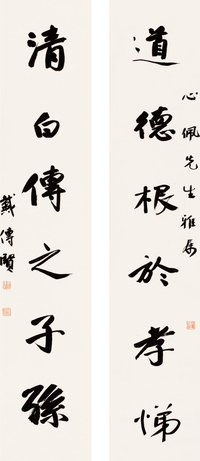 道德根於孝悌
心佩先生雅屬
清白傳之子孫
戴傳賢